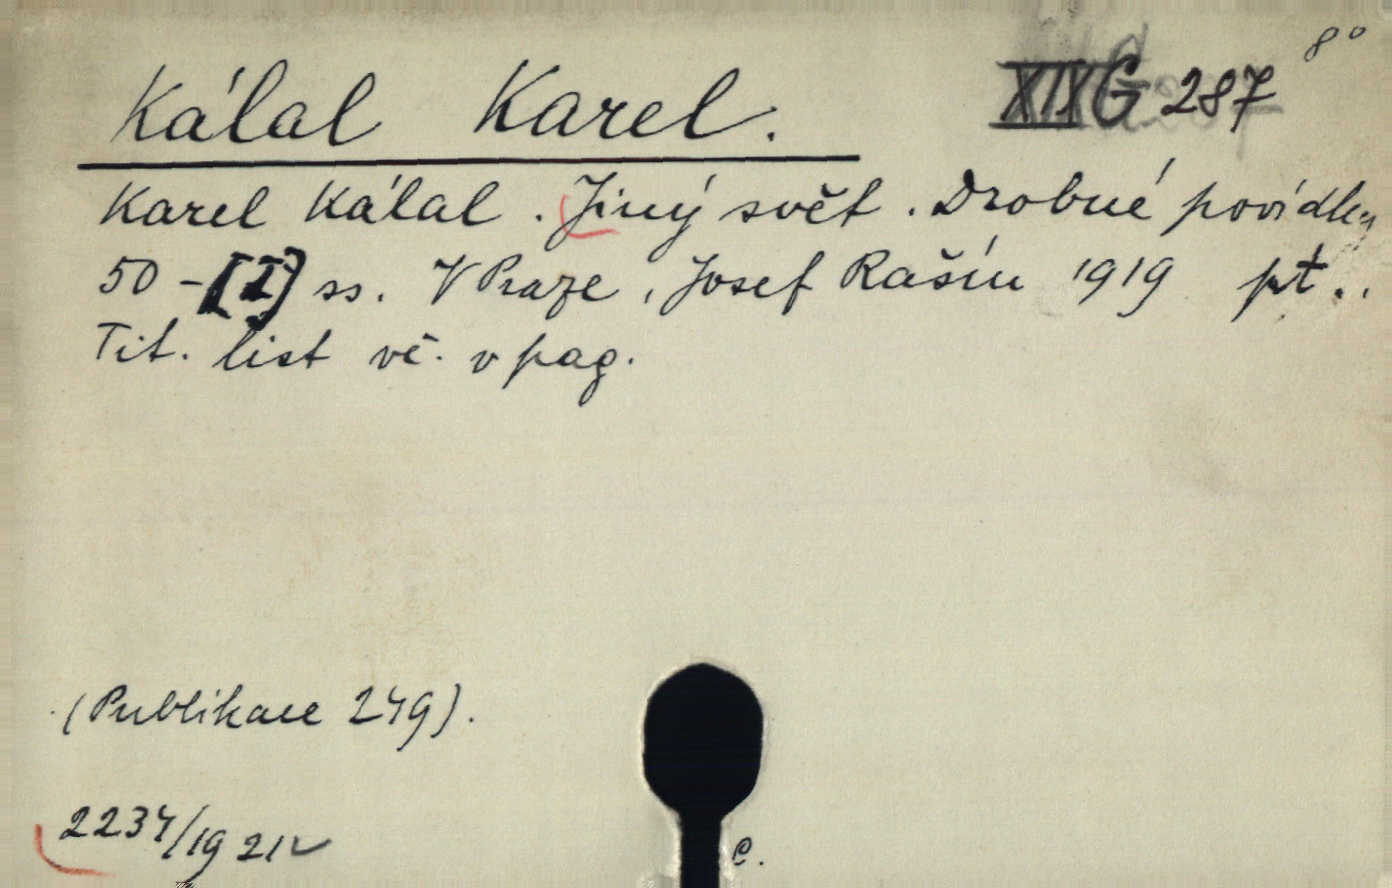 8°
Kálal Karel. XIX G 287
Karel Kálal. Jiný svět. Drobné povídky
50 - [I] ss. V Praze, Josef Rašín 1919 pt..
Tit. list vč. v pag.
(Publikace 249).
2234/1921
C.